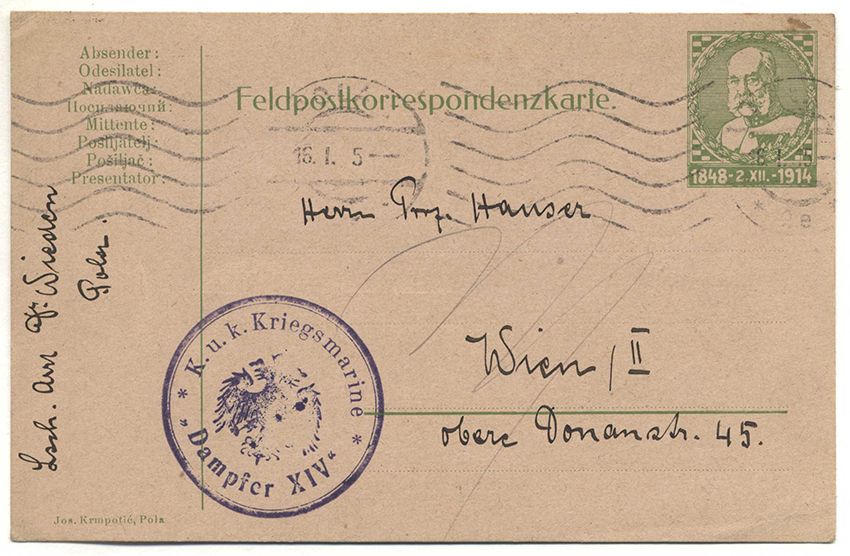 Absender:
Odesilatel:
Nadawca:
Посилаючий:
Mittente:
Pošiljatelj:
Pošiljač:
Presentator:
Feldpostkorrespondenzkarte.
16. I. 5
1848-2.XII.-1914
Herrn Hauser
Wien / II
obere Donaustr. 45.
Wieden
Pola.
* K. u. k. Kriegsmarine *
„Dampfer XIV“
Jos. Krmpotić, Pola